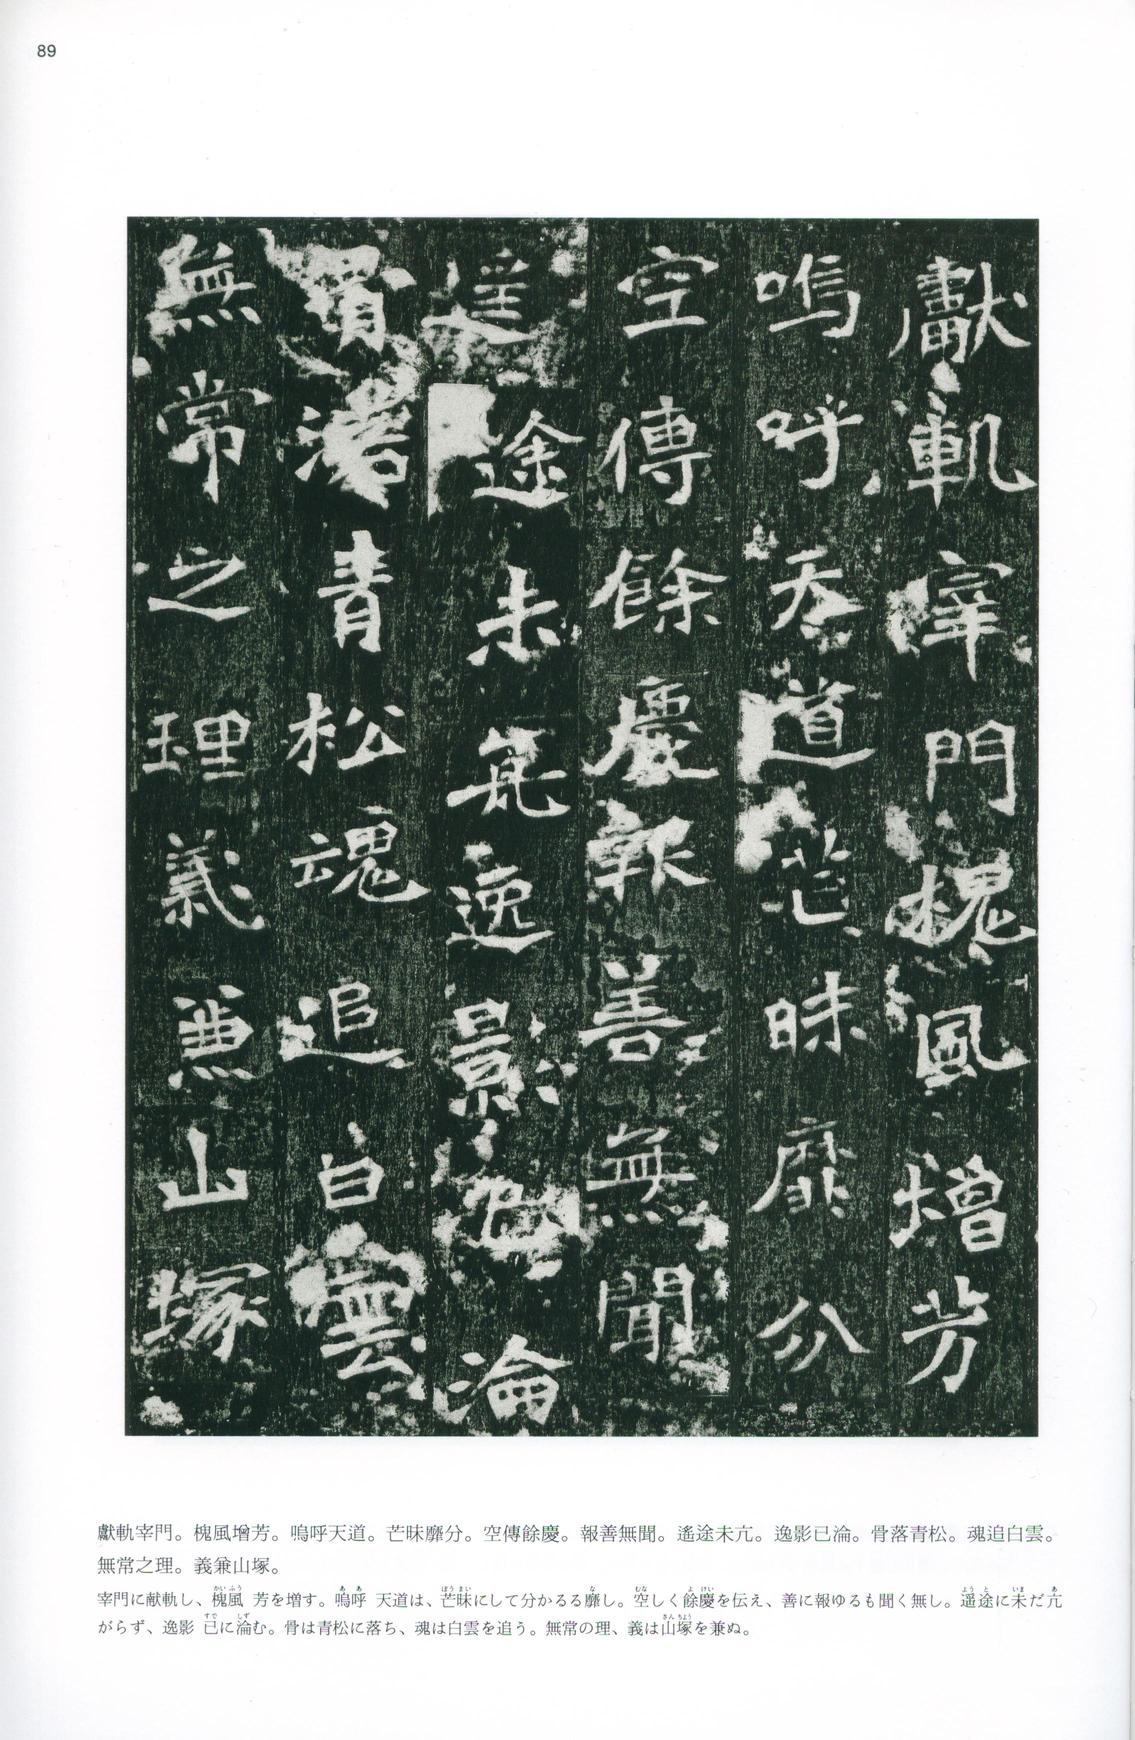 89
獻軌宰門槐風增芳
嗚呼天道芒昧靡分
空傳餘慶報善無聞
遙途未亢逸影已淪
骨落青松魂追白雲
無常之理義兼山塚
獻軌宰門。槐風增芳。嗚呼天道。芒昧靡分。空傳餘慶。報善無聞。遙途未亢。逸影已淪。骨落青松。魂追白雲。
無常之理。義兼山塚。
宰門に献軌し、槐風 芳を増す。嗚呼 天道は、芒昧にして分かるる靡し。空しく餘慶を伝え、善に報ゆるも聞く無し。遥途に未だ亢
がらず、逸影 已に淪む。骨は青松に落ち、魂は白雲を追う。無常の理、義は山塚を兼ぬ。